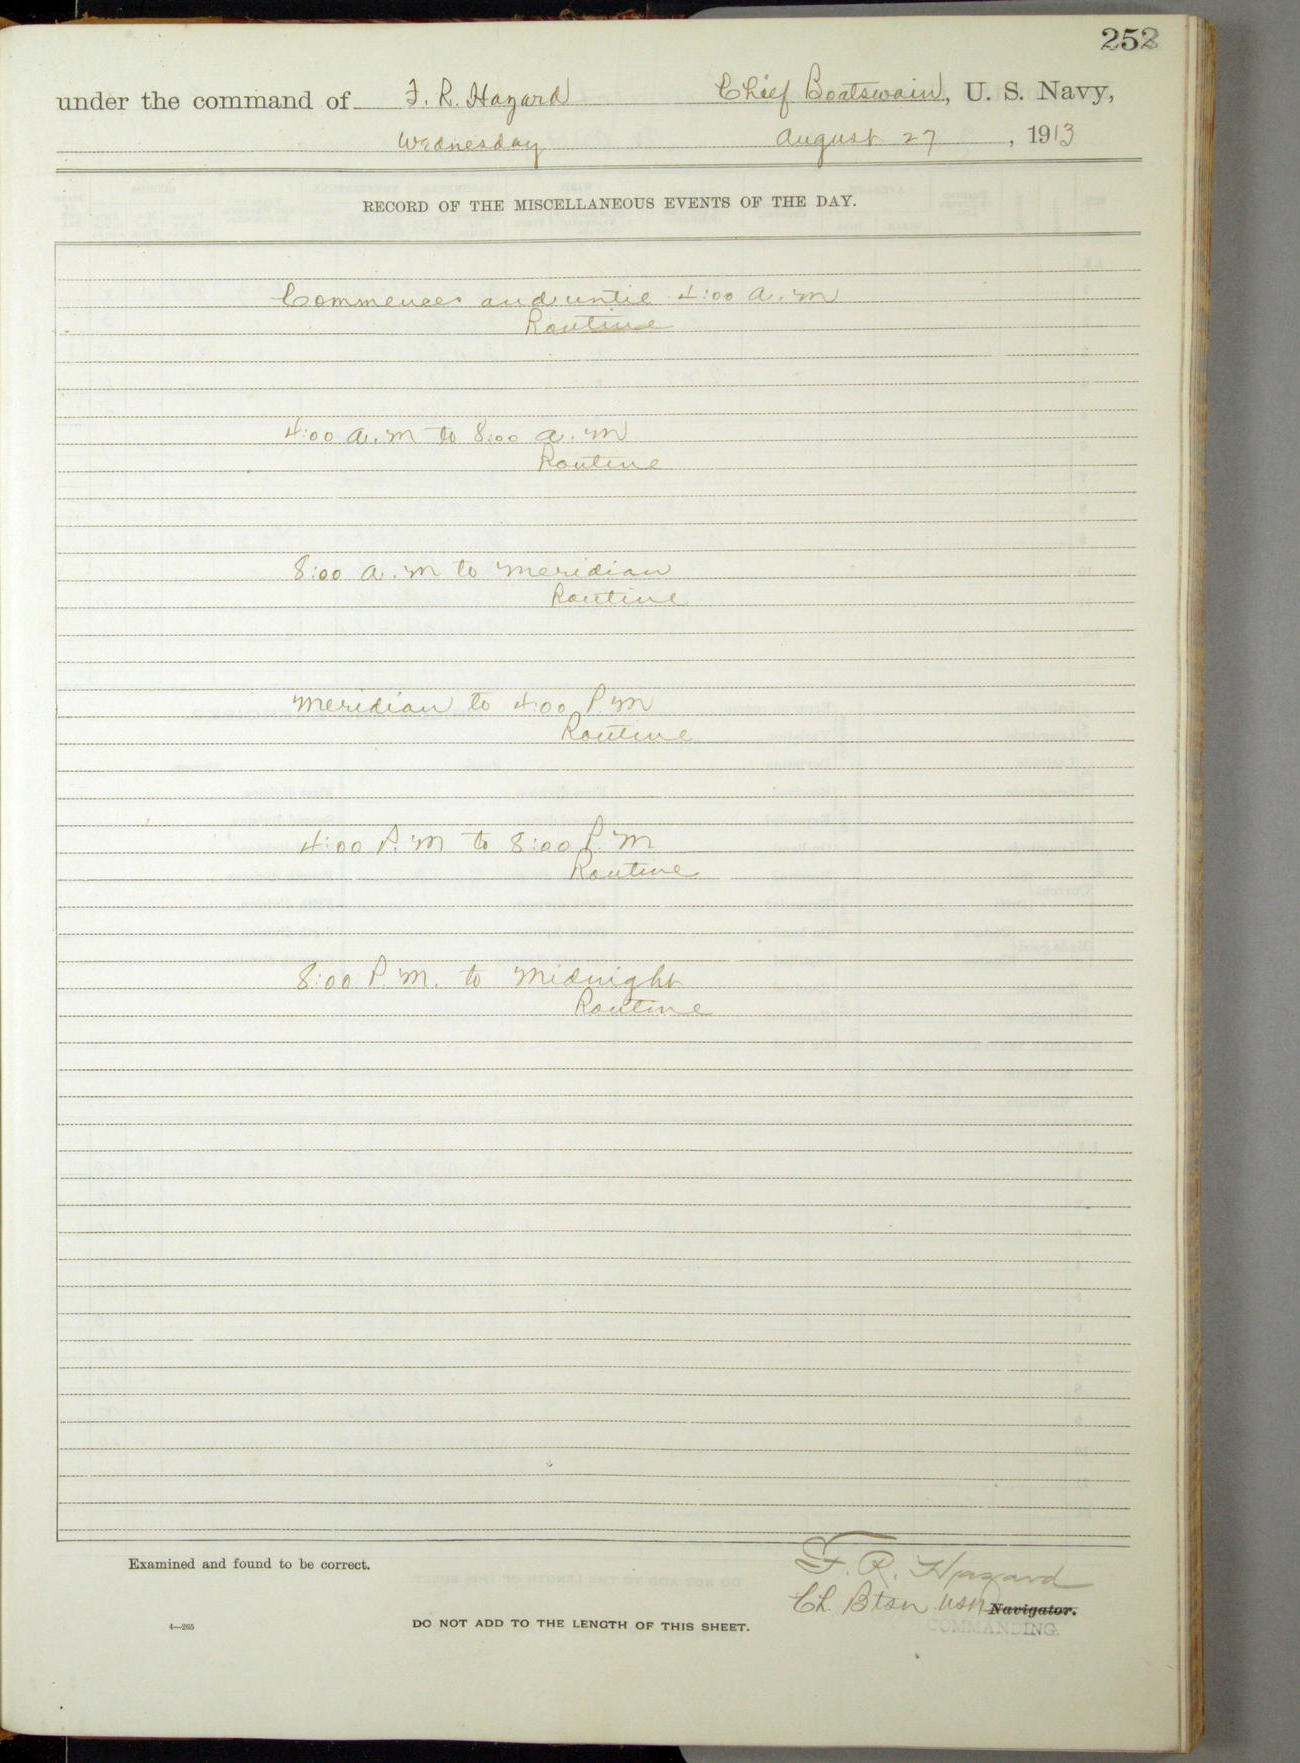 252
under the command of F. R. Hazard Chief Boatswain, U. S. Navy,
Wednesday August 27, 1913
RECORD OF THE MISCELLANEOUS EVENTS OF THE DAY.
Commences and until 4:00 a.m
Routine
4:00 a.m to 8:00 a.m
Routine
8:00 a.m to Meridian
Routine
Meridian to 4:00 P.M
Routine
4:00 P.M to 8:00 P.M
Routine
8:00 P.M. to Midnight
Routine
Examined and found to be correct.
F. R. Hazard
Ch. Btsn USN Navigator.
COMMANDING.
4—265
DO NOT ADD TO THE LENGTH OF THIS SHEET.